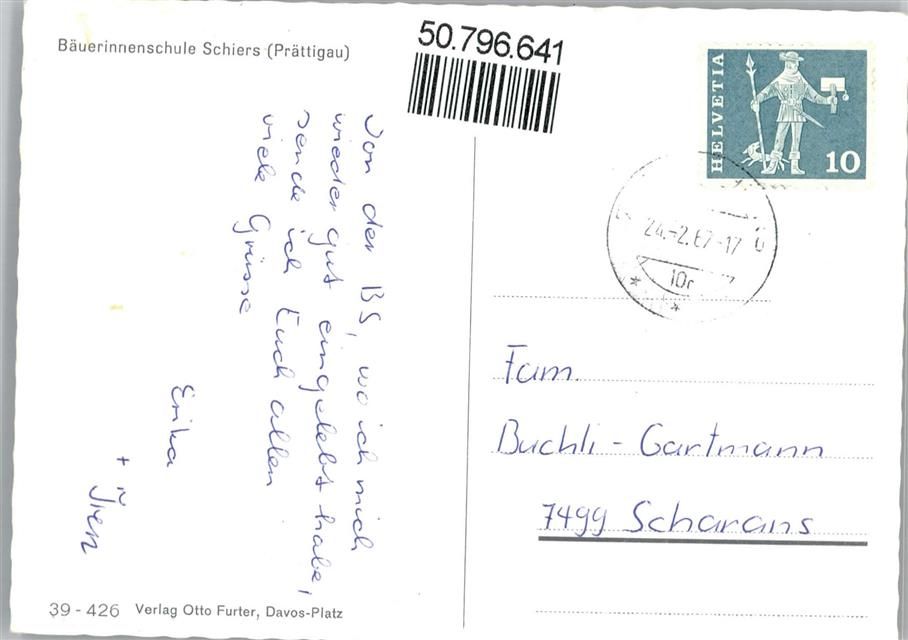 Bäuerinnenschule Schiers (Prättigau)
50.796.641
HELVETIA
10
24.-2.67-17
Von der BS, wo ich mich
wieder gut eingelebt habe,
sende ich Euch allen
viele Grüsse
Erika
+ Iren
Fam.
Buchli - Gartmann
7499 Scharans
39 - 426 Verlag Otto Furter, Davos-Platz